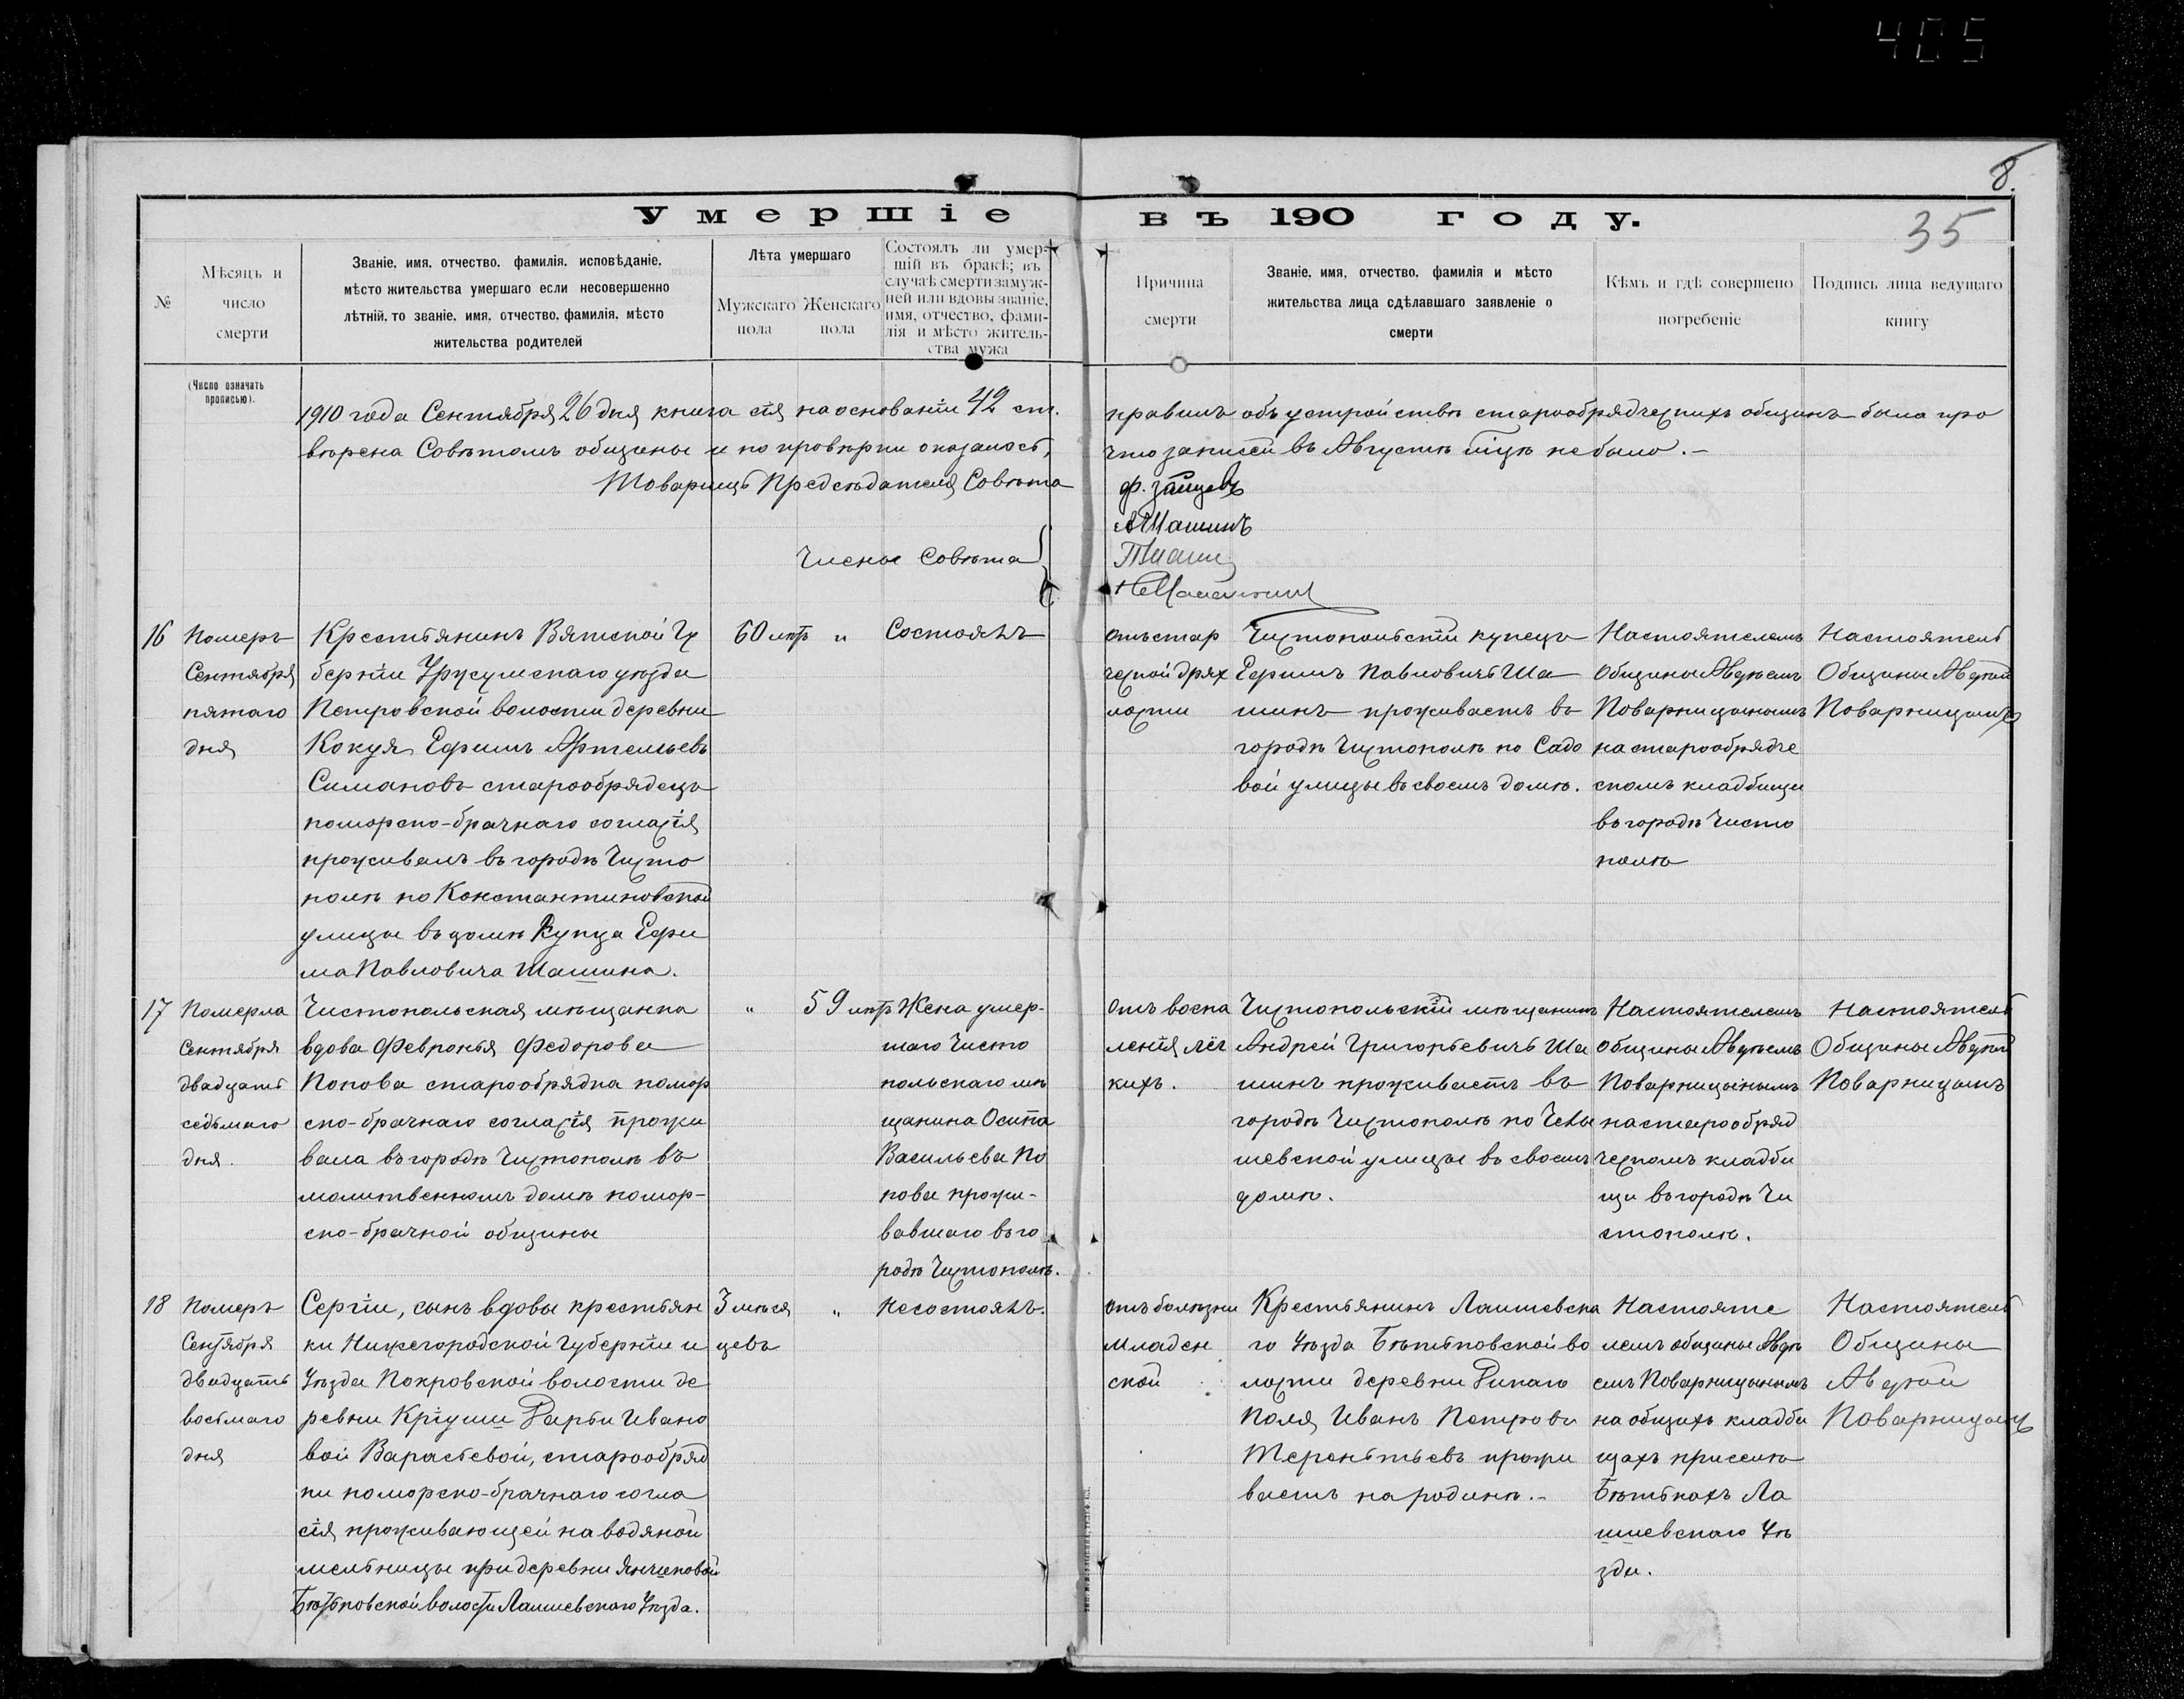 405
8.
35
Умершіе въ 190 году.
№
Мѣсяцъ и
число
смерти
(Число означать
прописью).
Званіе, имя, отчество, фамилія, исповѣданіе,
мѣсто жительства умершаго если несовершенно
лѣтній, то званіе, имя, отчество, фамилія, мѣсто
жительства родителей
Лѣта умершаго
Мужскаго
пола
Женскаго
пола
Состоялъ ли умер-
шій въ бракѣ; въ
случаѣ смерти замуж-
ней или вдовы званіе,
имя, отчество, фами-
лія и мѣсто житель-
ства мужа
Причина
смерти
Званіе, имя, отчество, фамилія и мѣсто
жительства лица сдѣлавшаго заявленіе о
смерти
Кѣмъ и гдѣ совершено
погребеніе
Подпись лица ведущаго
книгу
1910 года Сентября 26 дня книга сія на основаніи 42 ст. правилъ объ устройствѣ старообрядческихъ общинъ была про
вѣрена Совѣтомъ общины и по провѣрки оказалось, что записей въ Августѣ м͠цѣ не было.-
Товарищъ Предсѣдателя Совѣта Ф. Зайцевъ
А Шашинъ
Члены Совѣта
16
Померъ
Сентября
пятаго
дня
Крестьянинъ Вятской Гу
берніи Уржумскаго уѣзда
Петровской волости деревни
Кокуя Ефимъ Артемьевъ
Симановъ старообрядецъ
поморско-брачнаго согласія
проживалъ въ городѣ Чисто
полѣ по Константиновской
улицы въ домѣ Купца Ефи
ма Павловича Шашина.
60 лѣтъ
"
Состоялъ
отъ стар
ческой дрях
лости
Чистопольскій купецъ
Ефимъ Павловичъ Ша
шинъ проживаетъ въ
городѣ Чистополѣ по Садо
вой улицы въ своемъ домѣ.
Настоятелемъ
Общины Авдѣемъ
Поварницынымъ
на старообрядче
скомъ кладбищи
въ городѣ Чисто
полѣ
Настоятель
Общины Авдѣй
Поварницынъ
17
Померла
Сентября
двадцать
седьмаго
дня.
Чистопольская мѣщанка
вдова Февронья Федорова
Попова старообрядка помор
ско-брачнаго согласія прожи
вала въ городѣ Чистополѣ въ
молитвенномъ домѣ помор-
ско-брачной общины
"
59 лѣтъ
Жена умер-
шаго Чисто
польскаго мѣ
щанина Осипа
Васильева По
пова прожи-
вавшаго въ го
родѣ Чистополѣ.
отъ воспа
ленія лёг
кихъ.
Чистопольскій мѣщанинъ
Андрей Григорьевичъ Ша
шинъ проживаетъ въ
городѣ Чистополѣ по Челы
шевской улицы въ своемъ
домѣ.
Настоятелемъ
общины Авдѣемъ
Поварницынымъ
на старообряд
ческомъ кладби
щи въ городѣ Чи
стополѣ.
Настоятель
Общины Авдѣй
Поварницынъ
18
Померъ
Сентября
двадцать
восьмаго
дня
Сергій, сынъ вдовы крестьян
ки Нижегородской Губерніи и
Уѣзда Покровской волости де
ревни Кріуши Дарьи Ивано
вой Варасьевой, старообряд
ки поморско-брачнаго согла
сія проживающей на водяной
мельницы при деревни Янчиковой
Бѣтьковской волости Лаишевскаго Уѣзда.
3 мѣся
цевъ
"
Несостоялъ.
отъ болѣзни
Младен
ской
Крестьянинъ Лаишевска
го Уѣзда Бѣтьковской во
лости деревни Дикаго
Поля Иванъ Петрови
Терентьевъ прожи
ваетъ на родинѣ.-
Настояте
лемъ общины Авдѣ
емъ Поварницынымъ
на общихъ кладби
щахъ при селѣ
Бѣтькахъ Ла
ишевскаго Уѣ
зда.
Настоятель
Общины
Авдѣй
Поварницынъ